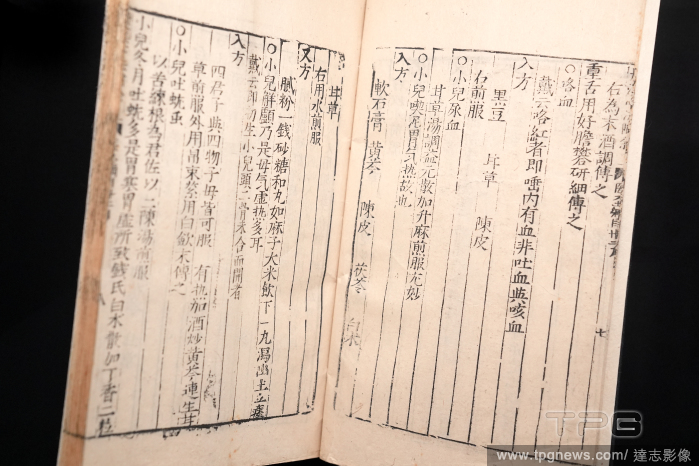 右為末酒調傅之
重舌用好膽礬研細傅之
○咯血
戴云咯紅者即唾内有血非吐血與咳血
又方
黑豆 甘草 陳皮
右煎服
○小兒尿血
甘草湯調益元散加升麻煎服尤妙
○小兒喫泥胃气热故也
又方
軟石膏 黄芩 陳皮 茯苓 白朮
甘草
右用水煎服
又方
膩粉一錢砂糖和丸如麻子大米飲下一丸瀉出土立瘥
○小兒解顱乃是母气虚热多耳
戴云即初生小兒頭上骨未合而開者
入方
四君子與四物子母皆可服 有热加酒炒黄芩連生甘
草煎服外用帛束緊用白歛末傅之
○小兒吐蛔虫
以苦練根為君佐以二陳湯煎服
小兒冬月吐蛔多是胃寒胃虚所致錢氏白朮散加丁香二粒
七
TPG
www.tpgnews.com/ 達志影像